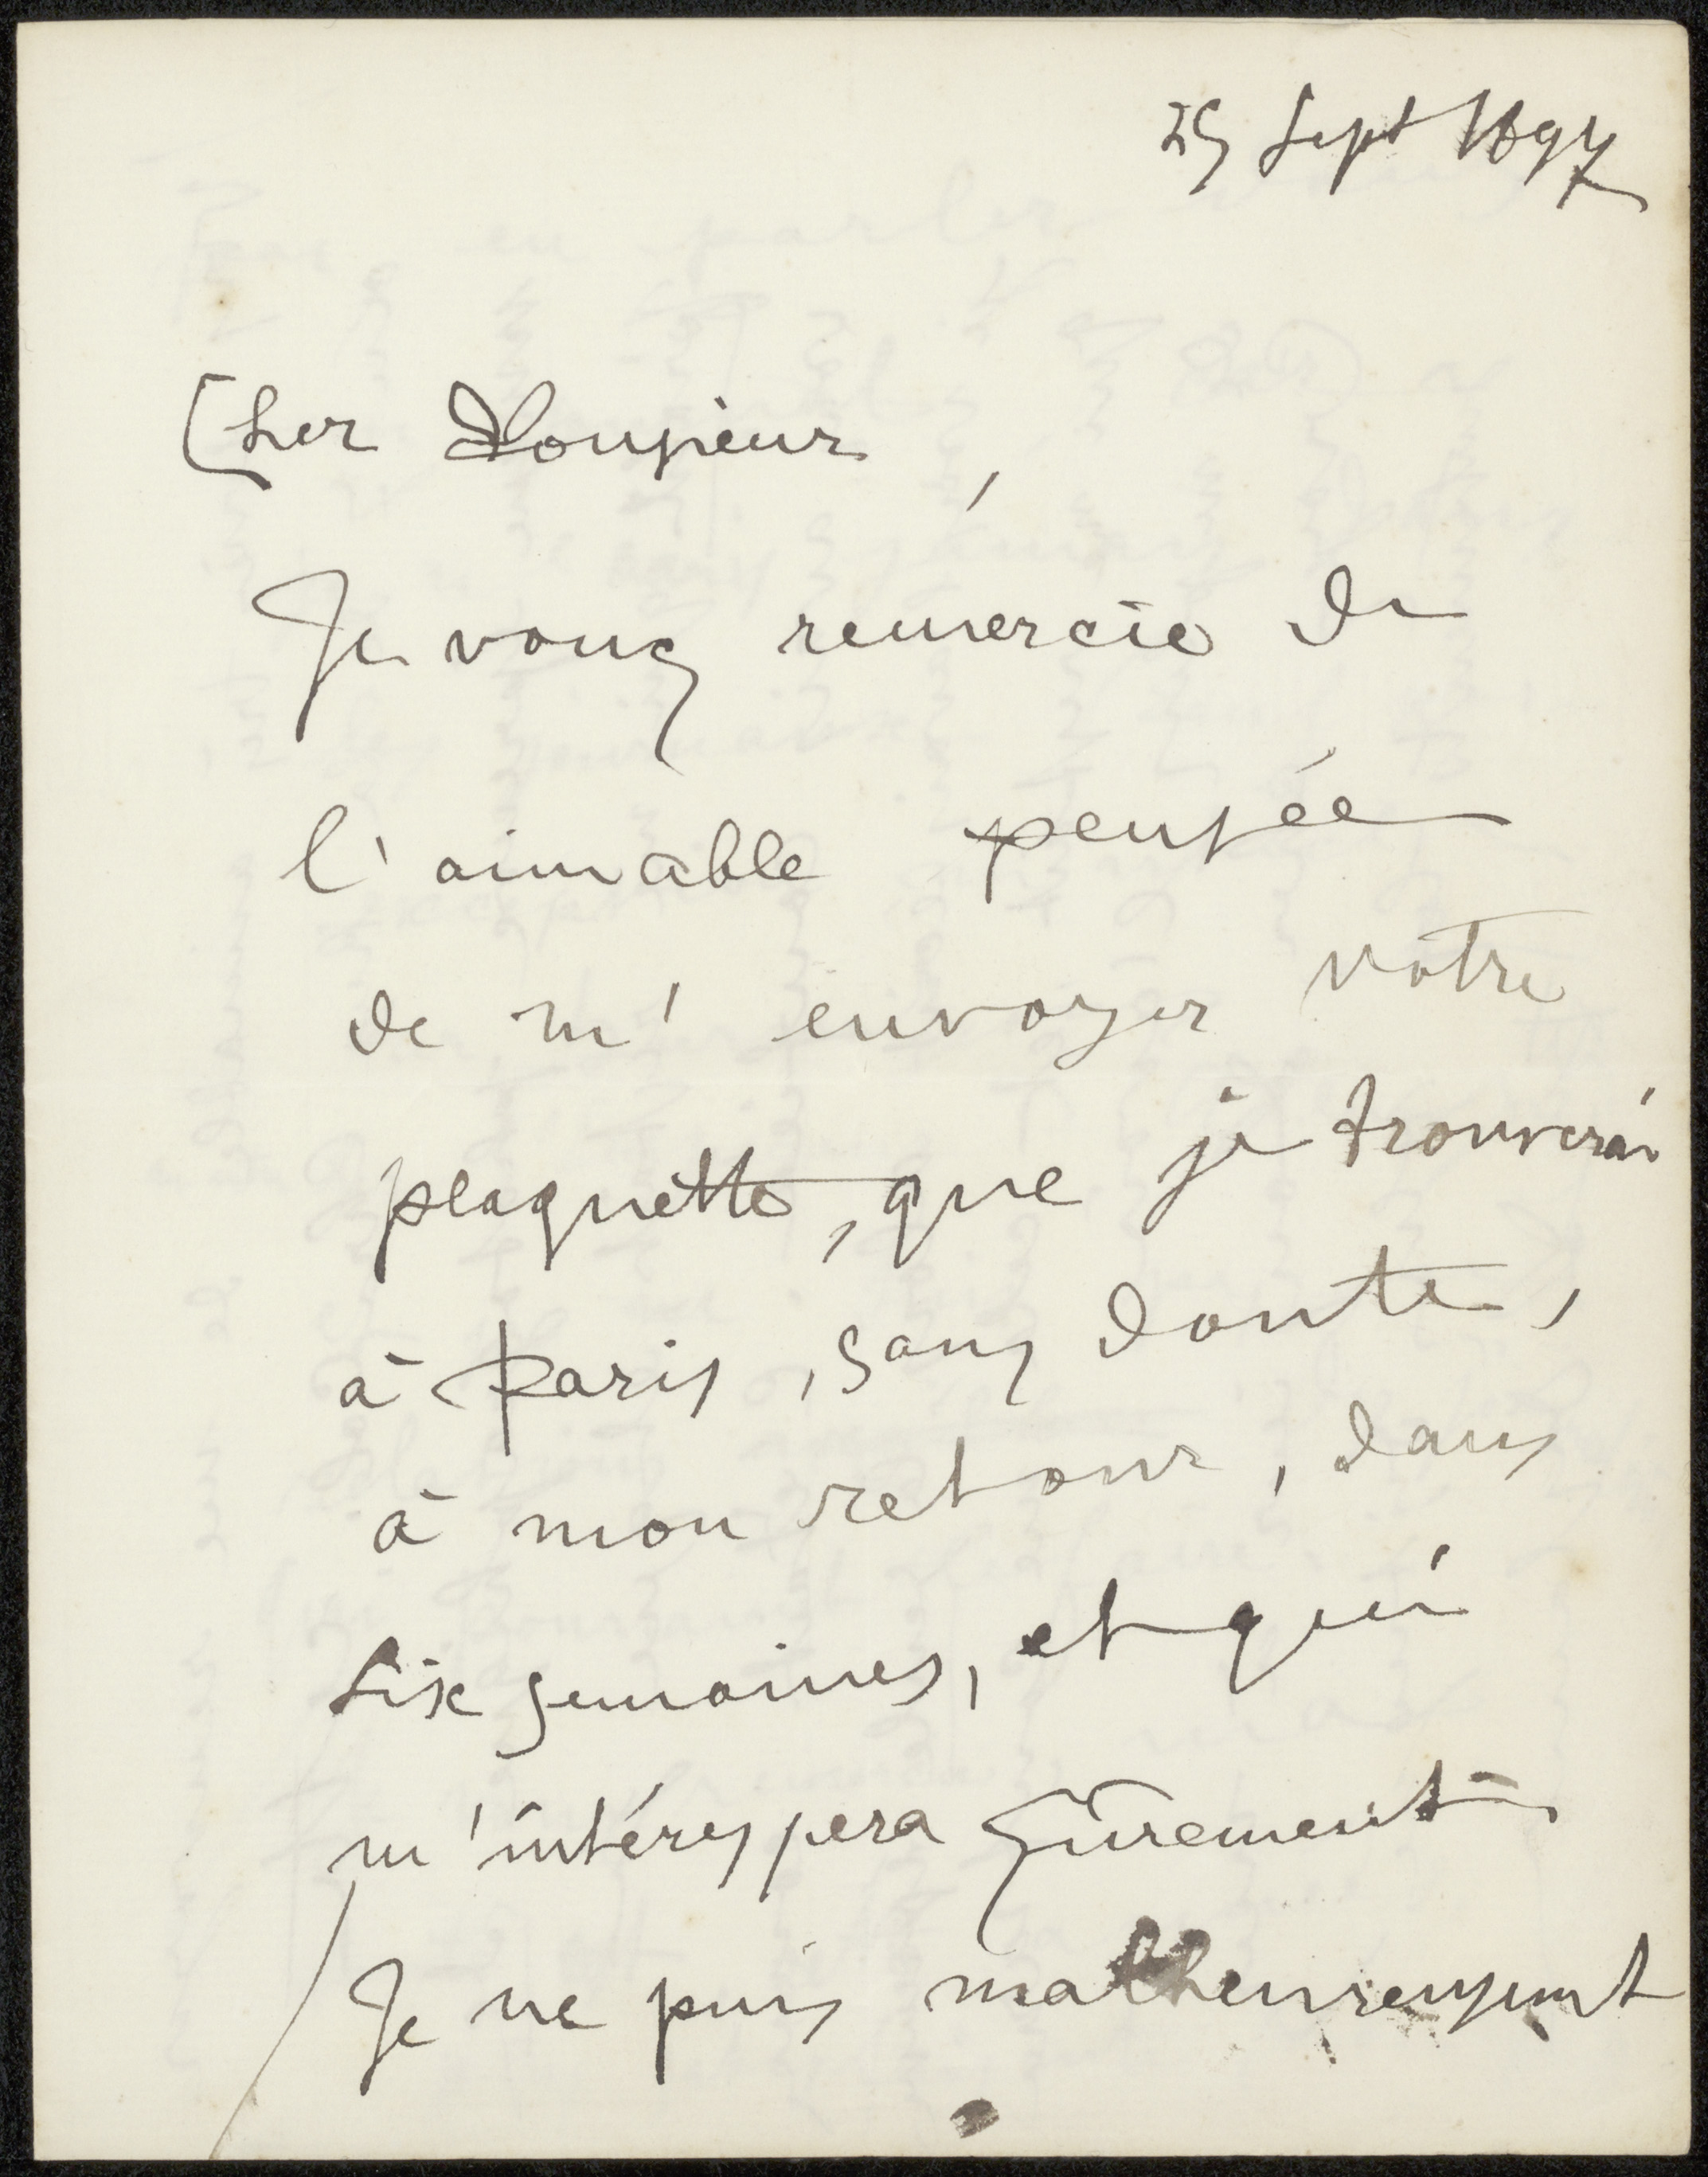 25 Sept 1897
Cher Monsieur,
Je vous remercie de
l'aimable pensée
de m'envoyer votre
plaquette, que je trouverai
à Paris, sans doute,
à mon retour, dans
six semaines, et qui
m'intéressera sûrement
Je ne puis malheureusement